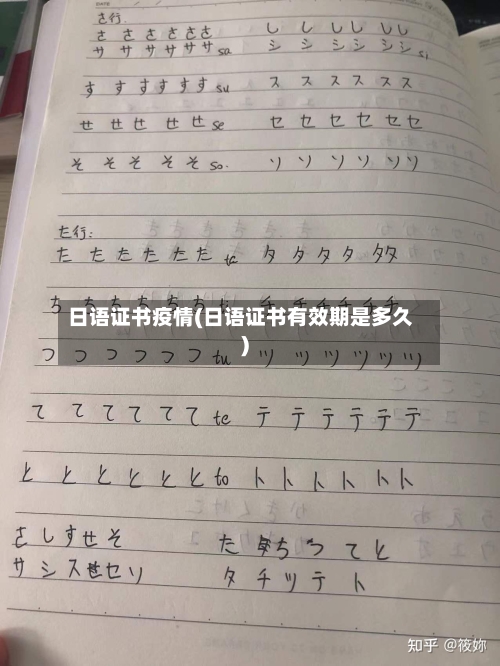 DATE
さ行.
さ さ さ さ さ さ し し し し し し
サ サ サ サ サ サ sa シ シ シ シ シ シ si
す す す す す す su ス ス ス ス ス ス
せ せ せ せ せ se セ セ セ セ セ セ
そ そ そ そ そ so. ソ ソ ソ ソ ソ ソ
た行:
た た た た た た ta タ タ タ タ タ タ
ち ち ち ち ち ち チ チ チ チ チ チ
日语证书疫情(日语证书有效期是多久
)
つ つ つ つ つ つ tu ツ ツ ツ ツ ツ ツ
て て て て て て te テ テ テ テ テ テ
と と と と と と to ト ト ト ト ト ト
さ し す せ そ た ち つ て と
サ シ ス セ ソ タ チ ツ テ ト
知乎 @筱妳